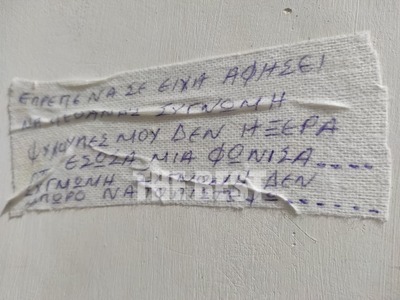 ΕΠΡΕΠΕ ΝΑ ΣΕ ΕΙΧΑ ΑΦΗΣΕΙ
ΝΑ ΣΥΓΝΟΜΗ
ΨΥΧΟΥΛΕΣ ΜΟΥ ΔΕΝ ΗΞΕΡΑ
ΣΕ ΕΣΩΣΑ ΜΙΑ ΦΩΝΙΣΑ....
ΣΥΓΝΩΜΗ ΔΕΝ
ΜΠΩΡΟ ΝΑ